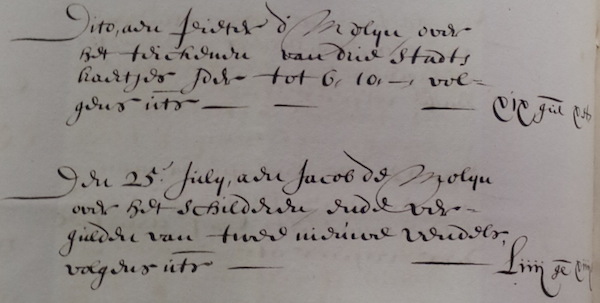 Dito, aen Pieter d Molyn over
het teickenen van drie stadts
kaertjes yder tot 6. 10. —, vol-
gens uts — — — xix gul x st
Den 25 July, aen Jacob de Molyn
over het schilderen ende ver-
gulden van twee nieuwe vendels,
volgens uts — — Liiij ge